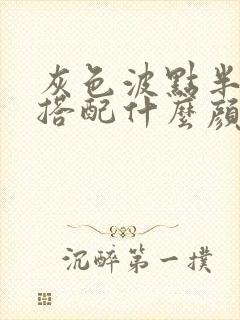 灰色波點半
搭配什麼顏
沉醉第一撲